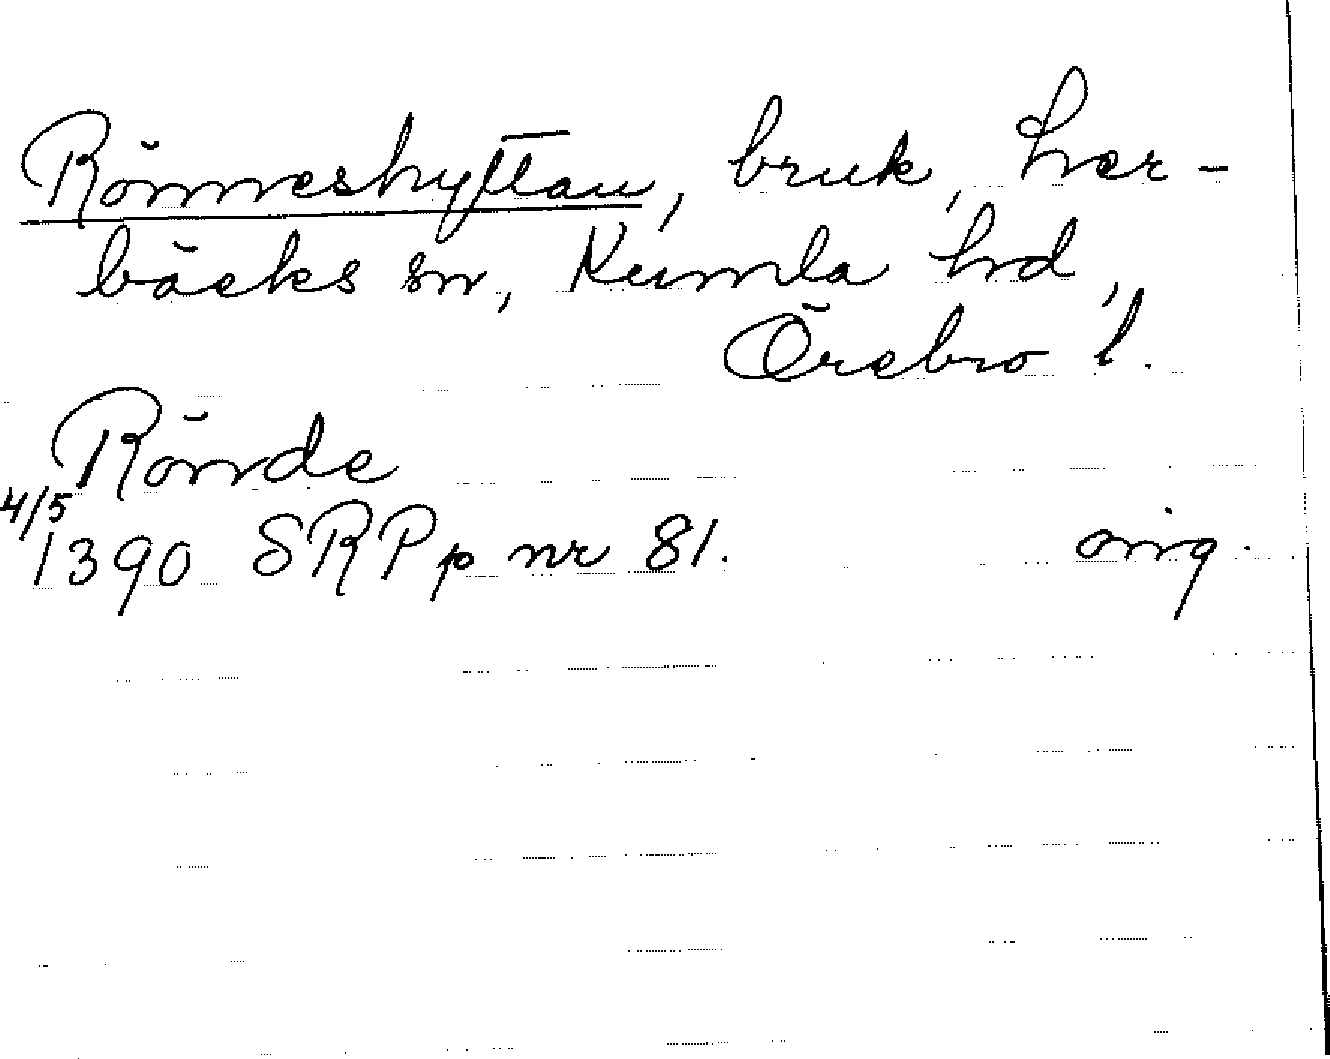 Rönneshyttan, bruk, Ler-
bäcks sn, Kumla hd,
Örebro l.
Rönde
4/5
1390 SRPp nr 81. orig.